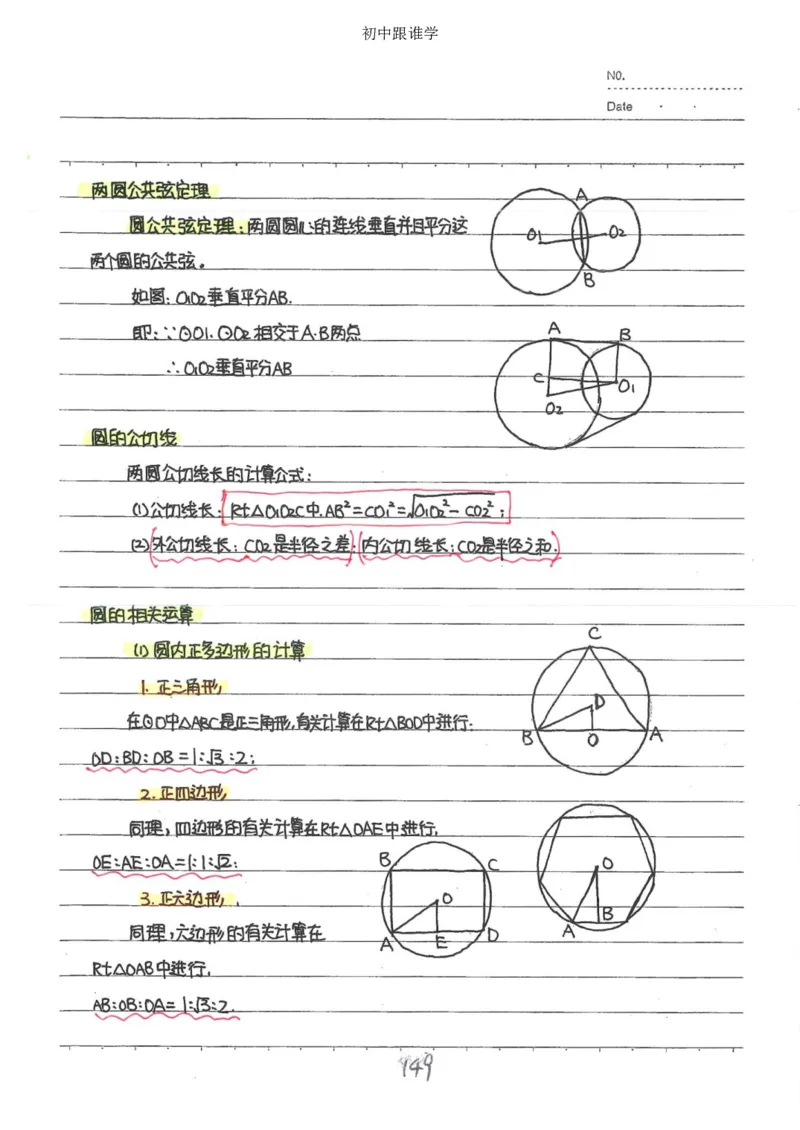 初中跟谁学
NO.
Date
两圆公共弦定理
圆公共弦定理：两圆圆心的连线垂直并且平分这
两个圆的公共弦。
如图：O1O2垂直平分AB.
即：∵⊙O1.⊙O2相交于A.B两点
∴O1O2垂直平分AB
A
O1
O2
B
A
B
C
O1
O2
圆的公切线
两圆公切线长的计算公式：
(1)公切线长：Rt△O1O2C中.AB²=CO1²=√O1O2²-CO2²；
(2)外公切线长：CO2是半径之差；内公切线长：CO2是半径之和.
圆的相关运算
(1)圆内正多边形的计算
1. 正三角形，
在⊙O中△ABC是正三角形，有关计算在Rt△BOD中进行：
OD:BD:OB=1:√3:2；
C
D
B
O
A
2. 正四边形，
同理，四边形的有关计算在Rt△OAE中进行，
OE:AE:OA=1:1:√2；
B
C
O
A
E
D
3. 正六边形，
同理，六边形的有关计算在
Rt△OAB中进行，
AB:OB:OA=1:√3:2.
O
B
A
149